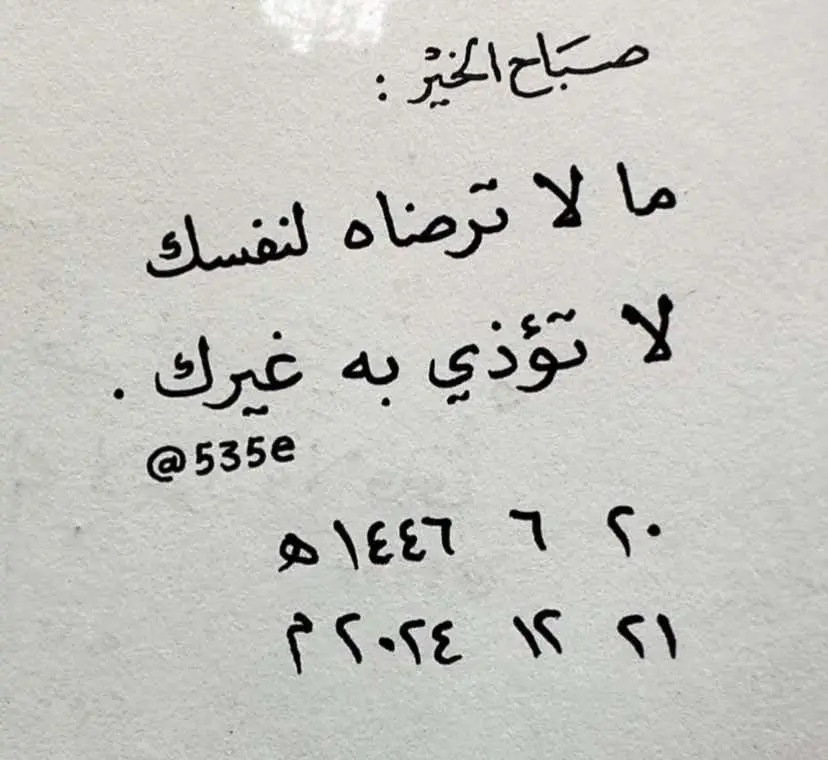 صَبَاح الخيْر :
ما لا ترضاه لنفسك
لا تؤذي به غيرك .
@535e
٢٠ ٦ ١٤٤٦ ه
٢١ ١٢ ٢٠٢٤ م